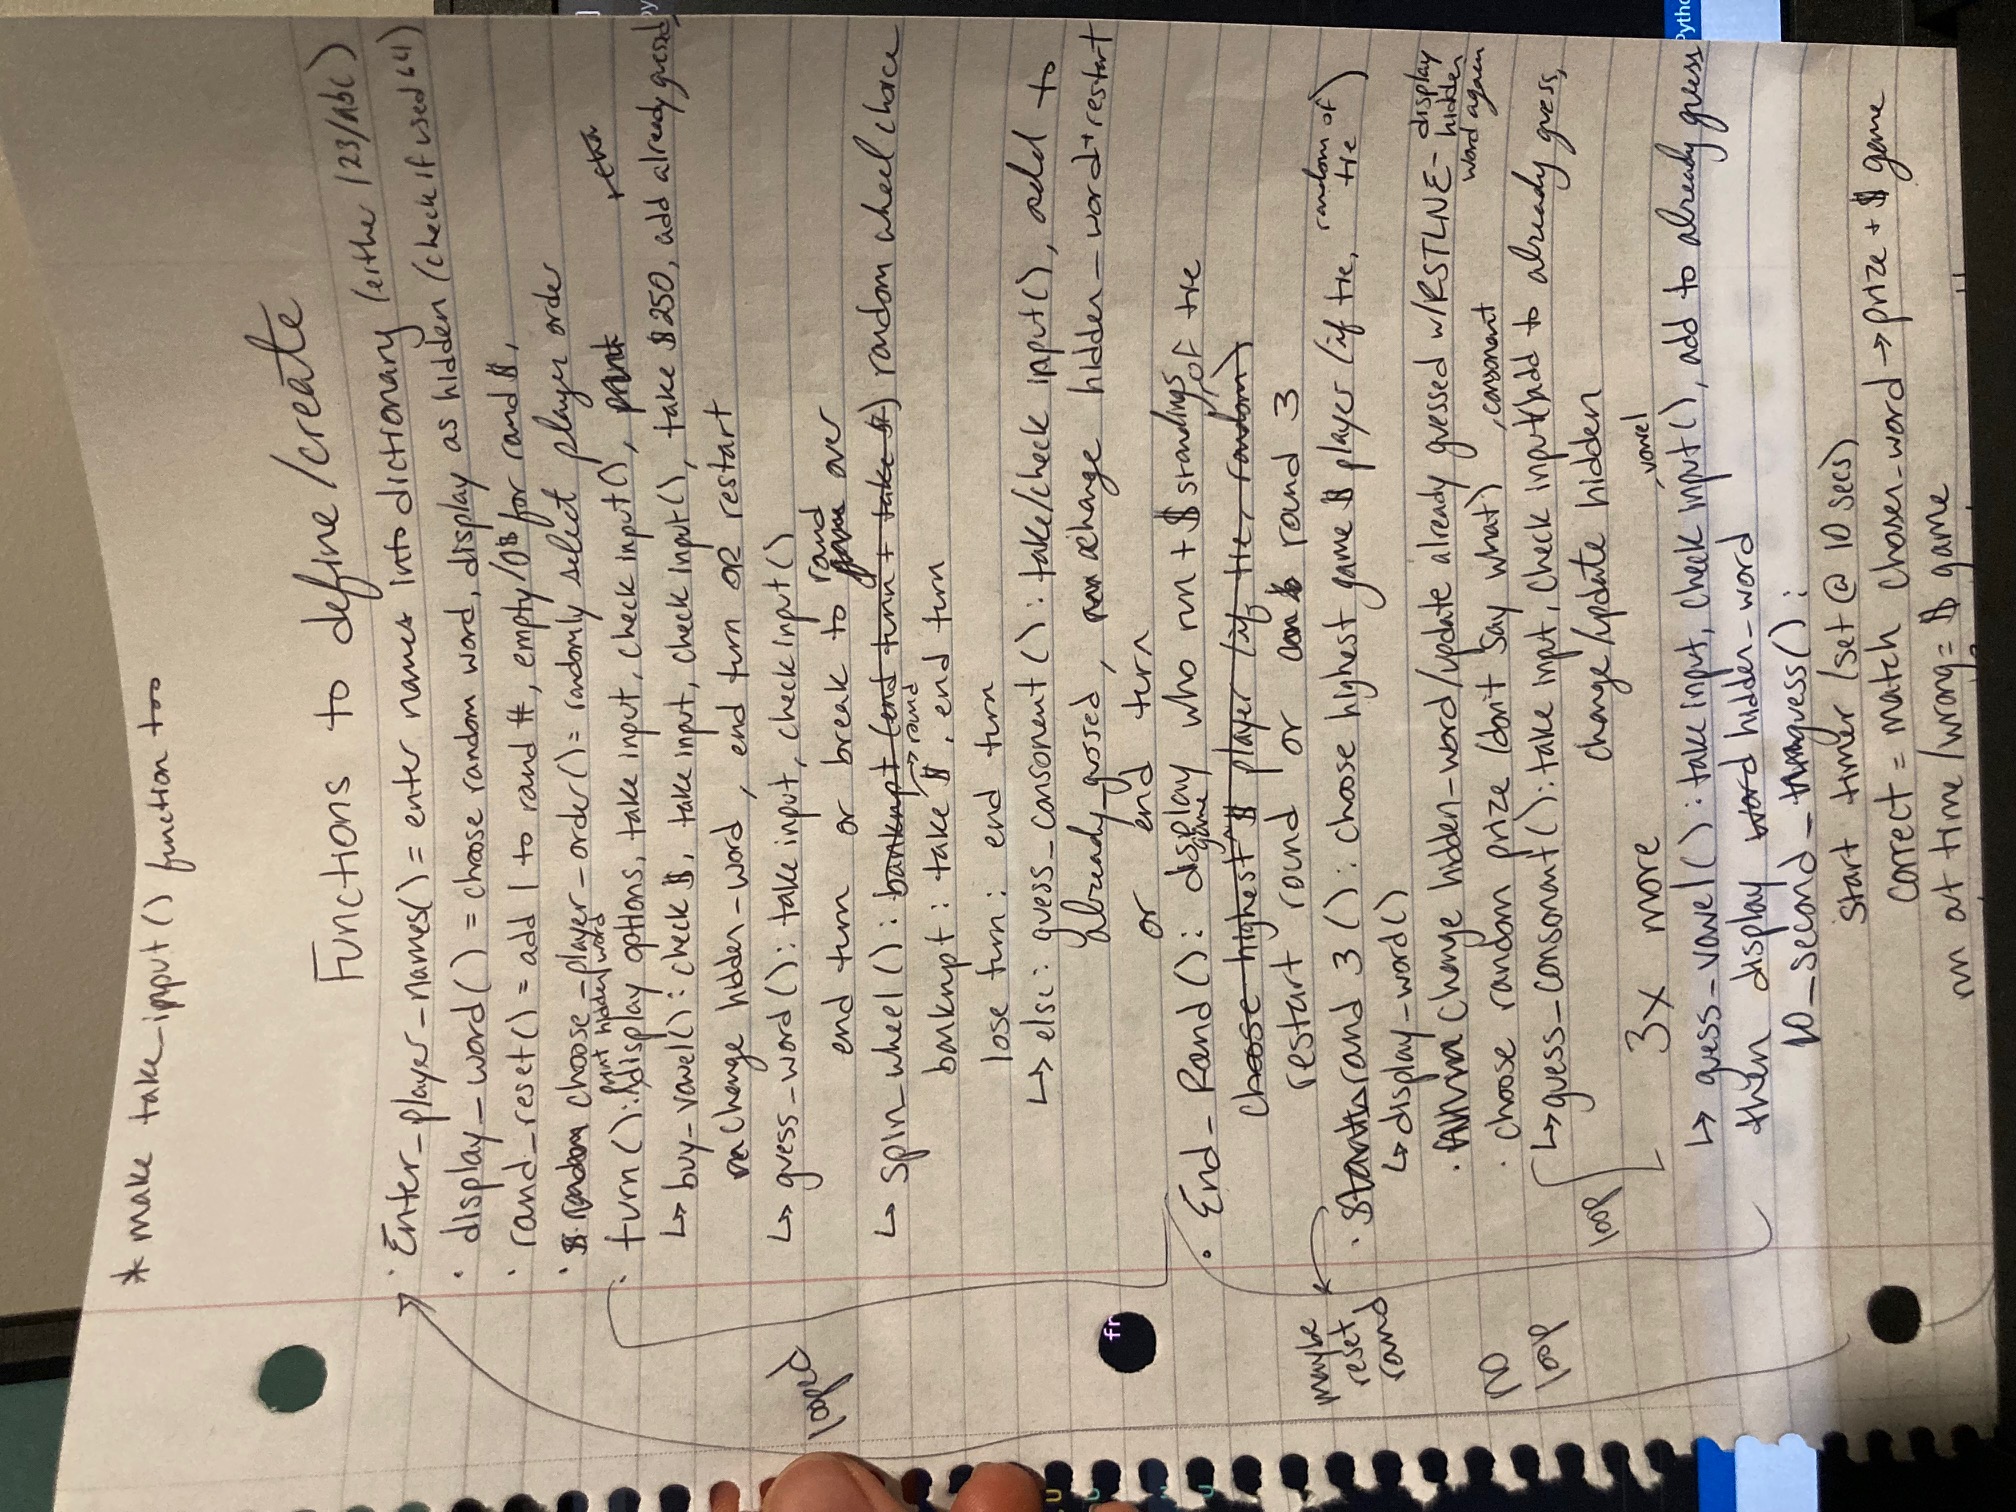 * make take_input() function too
Functions to define/create
· Enter_player_names() = enter names into dictionary (either 123/abc)
· display_word() = choose random word, display as hidden (check if used b4)
· rand_reset() = add 1 to rand #, empty/0$ for rand $,
· choose_player_order() = randomly select player order
print hidden word
· turn(): display options, take input, check input(), print
↳ buy_vowel(): check $, take input, check input(), take $250, add already guessed,
change hidden_word, end turn OR restart
↳ guess_word(): take input, check input()
looped
rand
end turn or break to game over
↳ spin_wheel(): bankrupt (end turn + take $) random wheel choice
→ round
bankrupt: take $, end turn
lose turn: end turn
↳ else: guess_consonent(): take/check input(), add to
already_gussed, change hidden_word + restart
or end turn
· End_Rand(): display who run + $ standings, of tie
game
choose highest $ player (if tie, random)
restart round or round 3
maybe
reset
rand
· Start rand 3(): choose highest game $ player (if tie, random of tie)
↳ display_word()
· change hidden_word/update already guessed w/RSTLNE - display
hidden
word again
· choose random prize (don't say what) , consonant
no
loop
↳ guess_consonant(): take input, check input() add to already guess,
loop
change/update hidden
3x more
, vowel
↳ guess_vowel(): take input, check input(), add to already guess
then display word hidden_word
10_second_guess():
start timer (set @ 10 secs)
correct = match chosen_word → prize + $ game
run at time/wrong = $ game
fr
Pytho
py
U